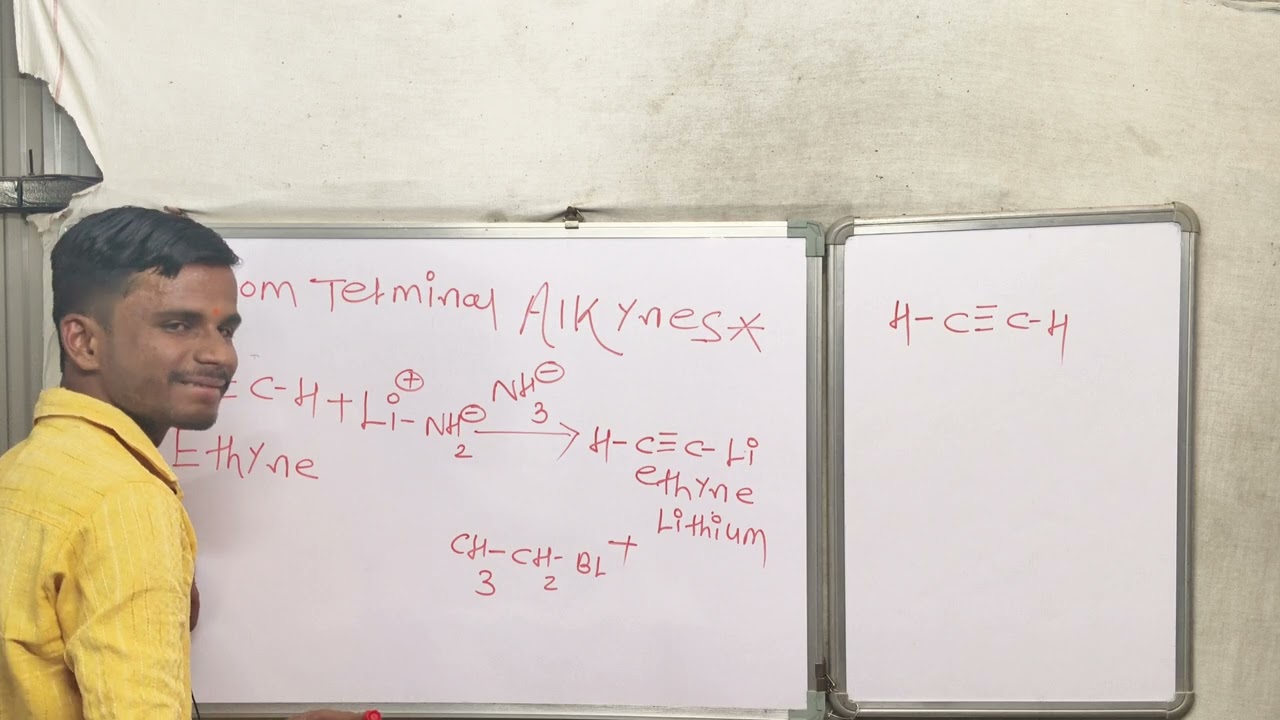 om Terminal Alkynes*
≡ C-H + Li⊕-NH₂⊖ NH₃⊖ → H-C≡C-Li
Ethyne
ethyne
Lithium
CH₃-CH₂-BL +
H-C≡C-H